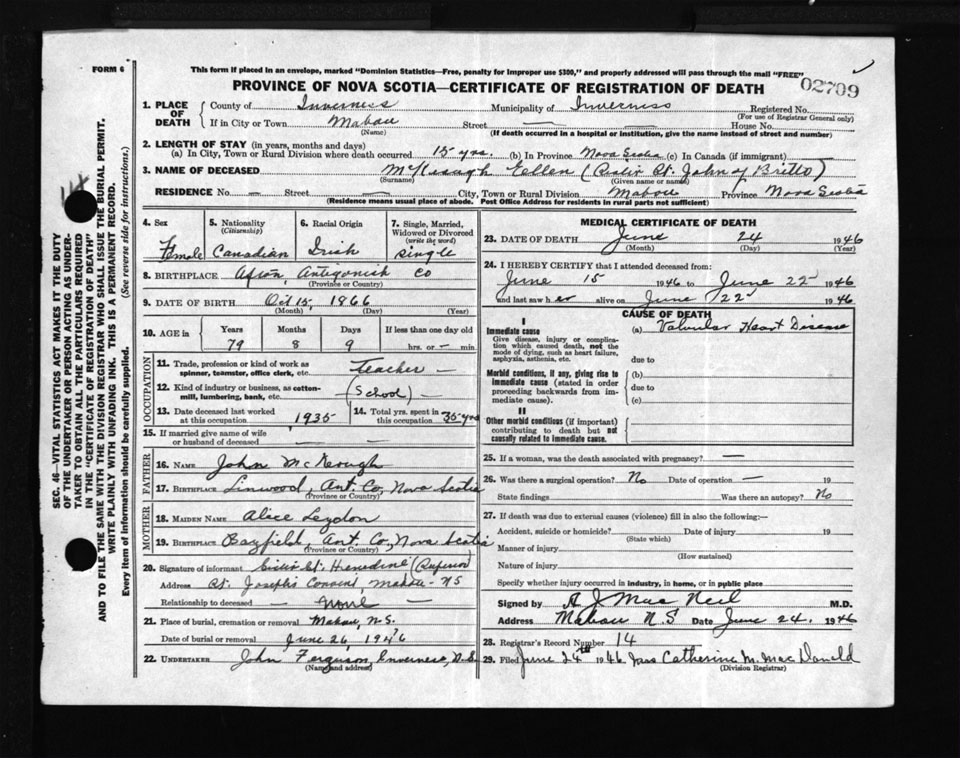 FORM 6
This form if placed in an envelope, marked "Dominion Statistics—Free, penalty for improper use $300," and properly addressed will pass through the mail "FREE"
PROVINCE OF NOVA SCOTIA—CERTIFICATE OF REGISTRATION OF DEATH
02709
1. PLACE OF DEATH
County of Inverness Municipality of Inverness Registered No.
(For use of Registrar General only)
If in City or Town Mabou Street — House No.
(Name) (If death occurred in a hospital or institution, give the name instead of street and number)
2. LENGTH OF STAY (in years, months and days)
(a) In City, Town or Rural Division where death occurred 15 yrs. (b) In Province Nova Scotia (c) In Canada (if immigrant)
3. NAME OF DECEASED McKeough Ellen (Sister St. John of Britto)
(Surname) (Given name or names)
RESIDENCE No. — Street — City, Town or Rural Division Mabou Province Nova Scotia
(Residence means usual place of abode. Post Office Address for residents in rural parts not sufficient)
4. Sex
Female
5. Nationality (Citizenship)
Canadian
6. Racial Origin
Irish
7. Single, Married, Widowed or Divorced (write the word)
Single
8. BIRTHPLACE Afton, Antigonish Co
(Province or Country)
9. DATE OF BIRTH Oct 15, 1866
(Month) (Day) (Year)
10. AGE in
Years Months Days If less than one day old
79 8 9 hrs. or — min.
OCCUPATION
11. Trade, profession or kind of work as spinner, teamster, office clerk, etc. Teacher —
12. Kind of industry or business, as cotton-mill, lumbering, bank, etc. (School)
13. Date deceased last worked at this occupation 1935
14. Total yrs. spent in this occupation 35 yrs
15. If married give name of wife or husband of deceased — —
FATHER
16. NAME John McKeough
17. BIRTHPLACE Linwood, Ant. Co, Nova Scotia
(Province or Country)
MOTHER
18. MAIDEN NAME Alice Leydon
19. BIRTHPLACE Bayfield, Ant. Co, Nova Scotia
(Province or Country)
20. Signature of informant Sister St. (Superior)
Address St. Joseph's Convent, Mabou - NS
Relationship to deceased — none —
21. Place of burial, cremation or removal Mabou, N.S.
Date of burial or removal June 26, 1946
22. UNDERTAKER John Ferguson, Inverness, N.S.
(Name and address)
MEDICAL CERTIFICATE OF DEATH
23. DATE OF DEATH June 24 1946
(Month) (Day) (Year)
24. I HEREBY CERTIFY that I attended deceased from:
June 15 1946 to June 22 1946
and last saw her alive on June 22 1946
CAUSE OF DEATH
I
Immediate cause
Give disease, injury or complication which caused death, not the mode of dying, such as heart failure, asphyxia, asthenia, etc.
(a) Valvular Heart Disease
due to
Morbid conditions, if any, giving rise to immediate cause (stated in order proceeding backwards from immediate cause).
(b)
due to
(c)
II
Other morbid conditions (if important) contributing to death but not causally related to immediate cause.
25. If a woman, was the death associated with pregnancy? —
26. Was there a surgical operation? No Date of operation — 19
State findings Was there an autopsy? No
27. If death was due to external causes (violence) fill in also the following:—
Accident, suicide or homicide? Date of injury 19
(State which)
Manner of injury
(How sustained)
Nature of injury
Specify whether injury occurred in industry, in home, or in public place
Signed by A J MacNeil M.D.
Address Mabou N.S Date June 24, 1946
28. Registrar's Record Number 14
29. Filed June 24th 1946 Catherine M. MacDonald
(Division Registrar)
SEC. 46—VITAL STATISTICS ACT MAKES IT THE DUTY
OF THE UNDERTAKER OR PERSON ACTING AS UNDER-
TAKER TO OBTAIN ALL THE PARTICULARS REQUIRED
IN THE "CERTIFICATE OF REGISTRATION OF DEATH"
AND TO FILE THE SAME WITH THE DIVISION REGISTRAR WHO SHALL ISSUE THE BURIAL PERMIT.
WRITE PLAINLY WITH UNFADING INK. THIS IS A PERMANENT RECORD.
Every item of information should be carefully supplied. (See reverse side for instructions.)